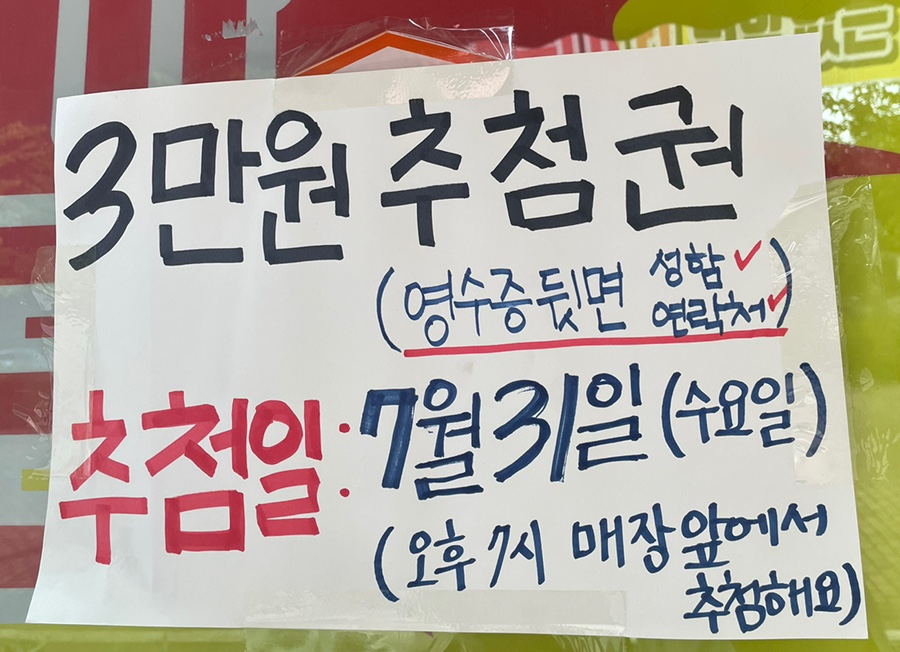 3만원 추첨권
(영수증 뒷면 성함✓
연락처✓)
추첨일: 7월 31일 (수요일)
(오후 7시 매장 앞에서
추첨해요)